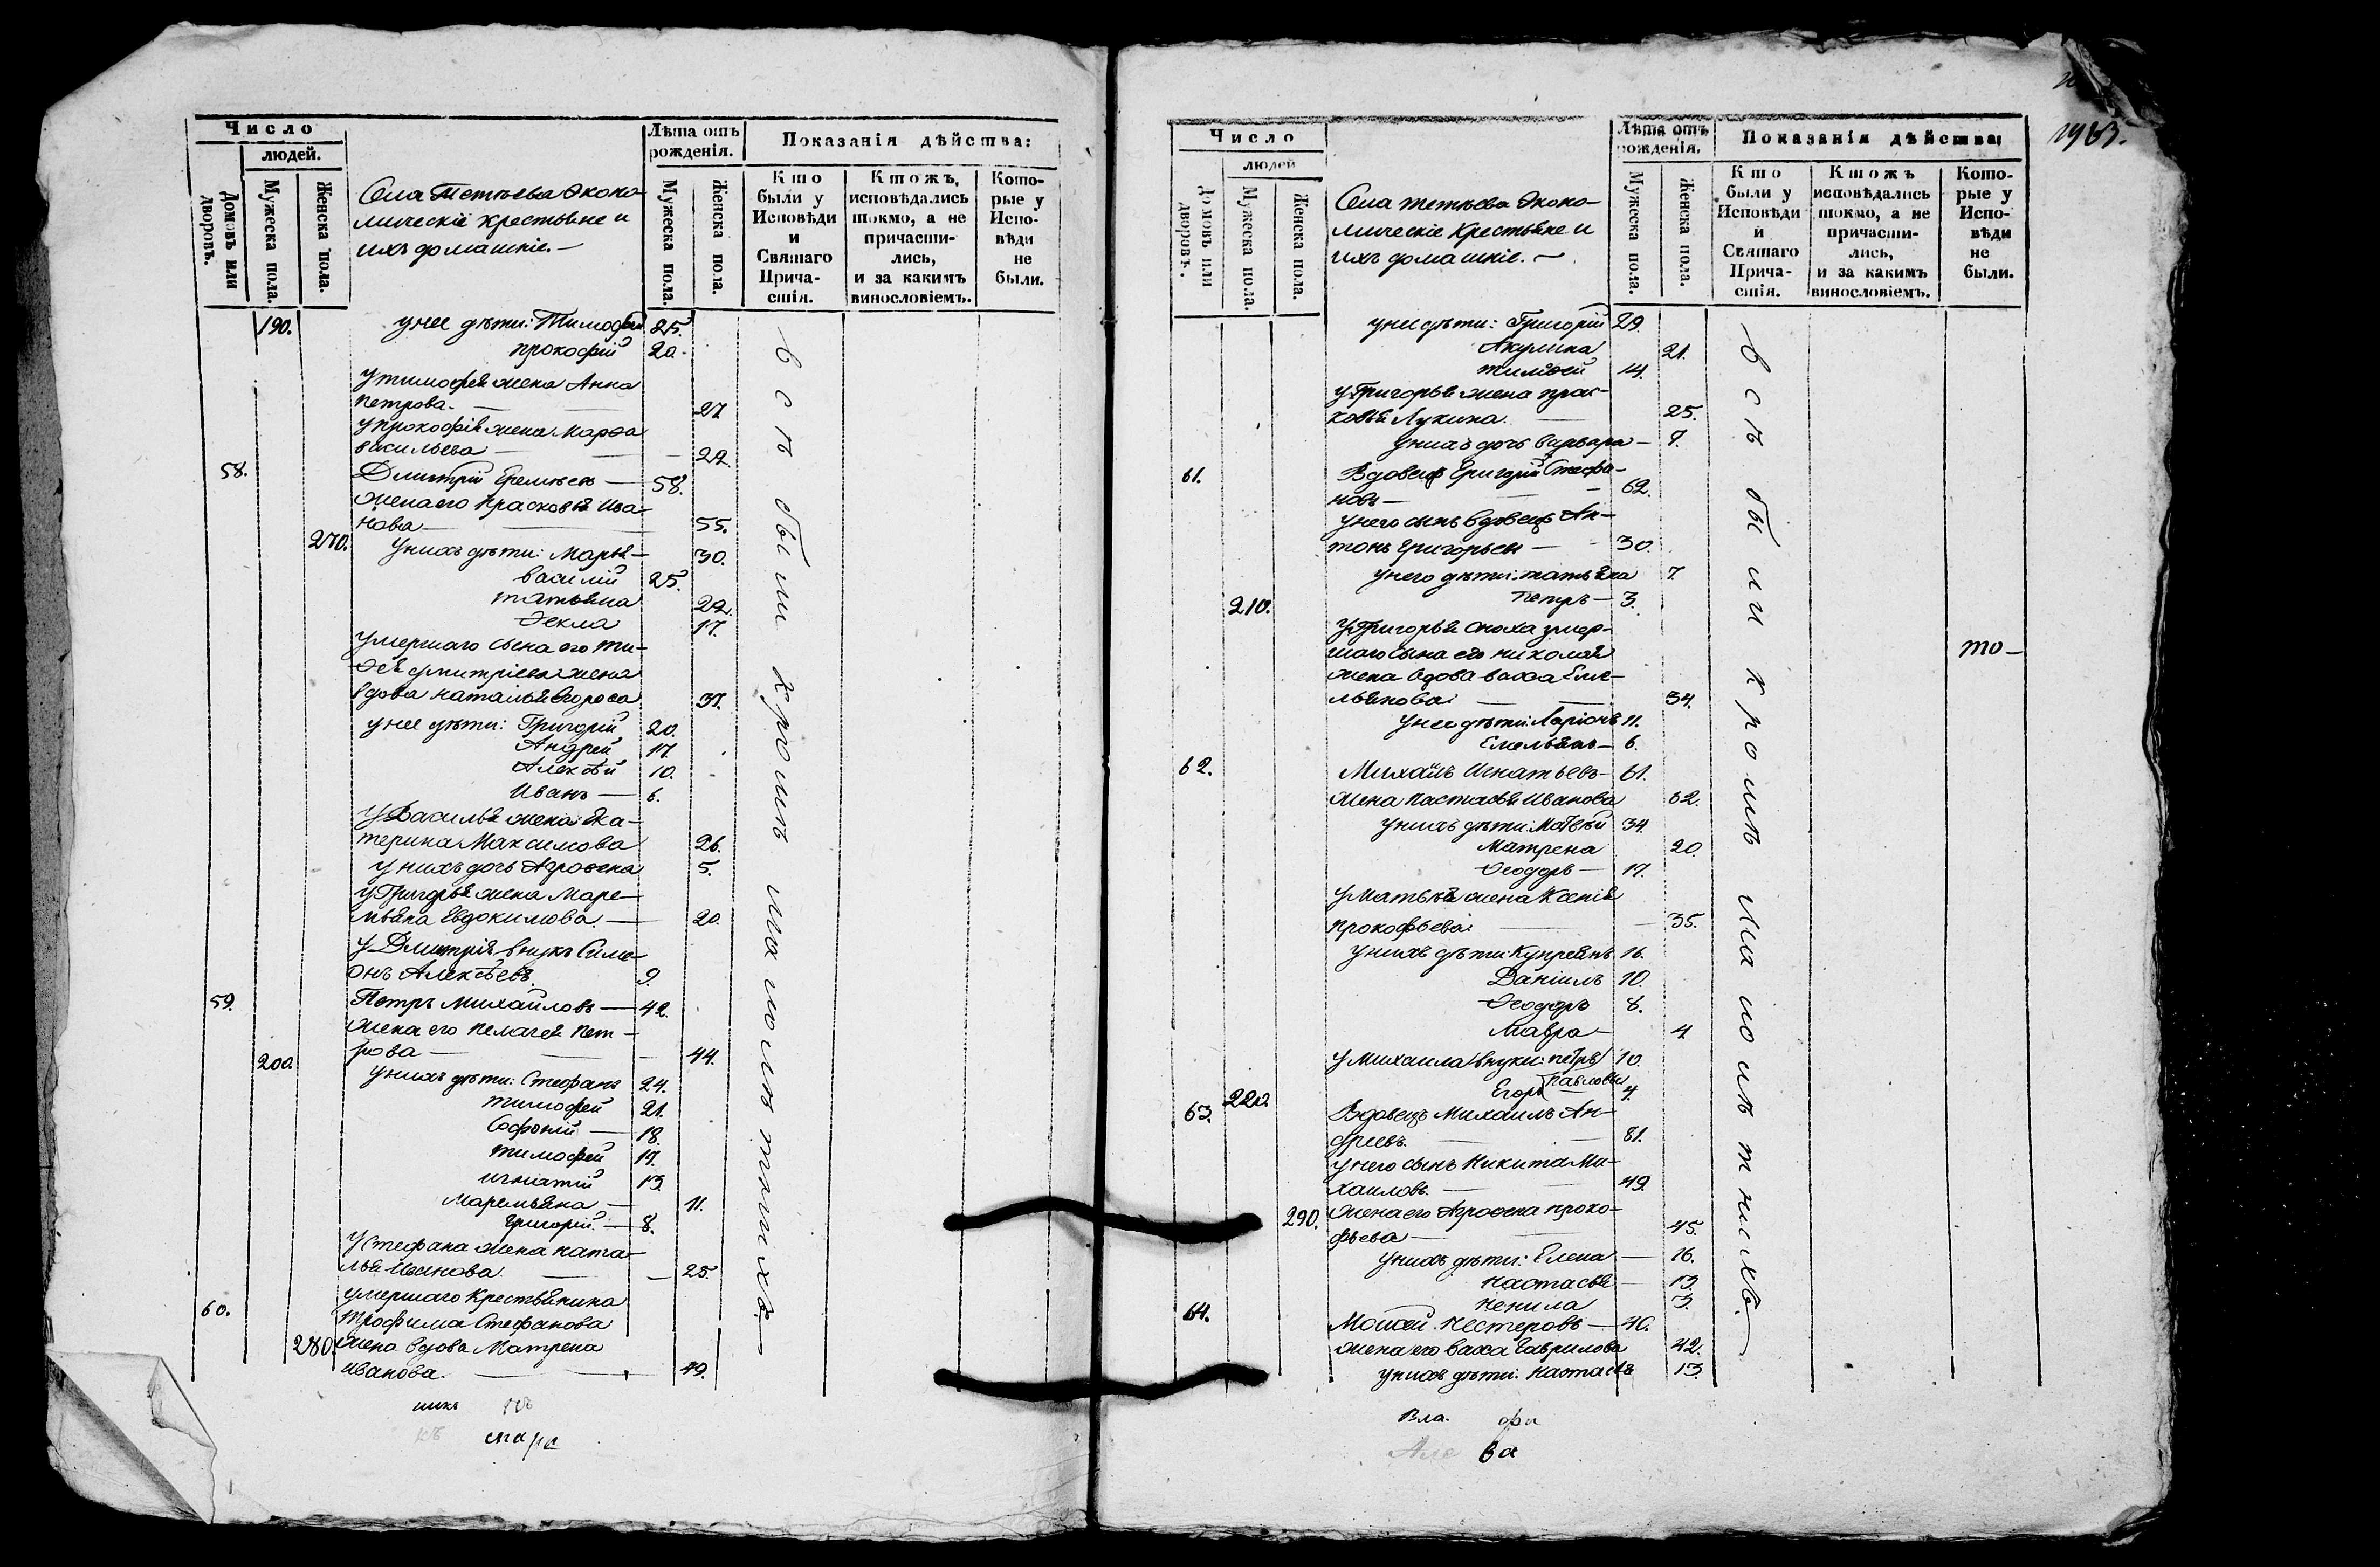 Число
людей.
Домовъ или дворовъ.
Мужеска пола.
Женска пола.
Села Тетѣева Эконо-
мическіе крестьяне и
ихъ домашніе. —
Лѣта отъ рожденія.
Мужеска пола.
Женска пола.
Показанія дѣйства:
Кто были у Исповѣди и Святаго Прича-стія.
Ктожъ, исповѣдались токмо, а не причасти-лись, и за какимъ винословіемъ.
Кото-рые у Испо-вѣди не были.
190. у нее дѣти: Тимофей 25.
Прокофій 20.
У тимофея жена Анна
Петрова. — 27
У прокофія жена Марѳа
васильева — 22.
58. Дмитрій Еремѣевъ — 58.
жена его Прасковья Ива-
нова — 55.
270. У нихъ дѣти: Марья — 30.
василій 25.
татьяна 22.
Ѳекла 17.
умершаго сына его Ти-
ѳея дмитріева жена
вдова наталья Ѳедорова 37.
у нее дѣти: Григорій 20.
Андрей 17.
Алексѣй 10.
Иванъ — 6.
У Василья жена Ека-
терина Максимова 26.
у нихъ дочь Агрофена 5.
У Григорья жена Маре-
мьяна Евдокимова. — 20.
У Дмитрія внукъ Симе-
онъ Алексѣевъ 9.
59. Петръ Михайловъ — 42.
Жена его пелагея Пет-
рова — 44.
200. У нихъ дѣти: Стефанъ 24.
тимофей 21.
Софоній — 18.
тимофей 17.
игнатій 13.
Маремьяна — 11.
Григорій. — 8.
У Стефана жена ната-
лья Иванова. — 25.
60. умершаго Крестьянина
трофима Стефанова
280. жена вдова Матрена
иванова. — 49.
всѣ были кромѣ малолѣтнихъ —
никъ
мара
1965.
Число
людей
Домовъ или дворовъ.
Мужеска пола.
Женска пола.
Села тетѣева Эконо-
мическіе Крестьяне и
ихъ домашніе. —
Лѣта отъ рожденія.
Мужеска пола.
Женска пола.
Показанія дѣйства:
Кто были у Исповѣди и Святаго Прича-стія.
Ктожъ исповѣдались токмо, а не причасти-лись, и за какимъ винословіемъ.
Кото-рые у Испо-вѣди не были.
у неи дѣти: Григорій 29.
Акулина 21.
14.
У Григорья жена прас-
ковья Лукина. 25.
У нихъ дочь варвара — 7.
61. Вдовецъ Григорій Стефа-
новъ — 62.
у него сынъ вдовецъ Ан-
тонъ Григорьевъ — 30.
у него дѣти: татьяна 7.
210. Петръ — 3.
У Григорья сноха умер-
шаго сына его николая
жена вдова васса Еме-
льянова — 34.
У нее дѣти: Ларіонъ 11.
Емельянъ — 6.
62. Михайлъ Игнатьевъ — 61.
жена настасья Иванова 62.
У нихъ дѣти: Матвѣй 34.
Матрена 20.
Ѳеодоръ — 17.
У Матвѣя жена Ксенія
прокофьева: — 35.
У нихъ дѣти: Купреянъ 16.
Даніилъ 10.
Ѳеодоръ 8.
Мавра — 4
у Михаила внуки: петръ 10.
220. Егоръ Павловы 4
63. Вдовецъ Михаилъ Ан-
дреевъ. — 81.
у него сынъ Никита Ми-
хаиловъ. — 49.
290. Жена его Агрофена проко-
фьева — 45.
У нихъ дѣти: Елена — 16.
настасья — 13.
ненила 3.
64. Мойсей Нестеровъ — 40.
жена его васса Гаврилова 42.
у нихъ дѣти: настасья 13.
всѣ были кромѣ малолѣтнихъ. —
то —
Вла. фи
Але ва